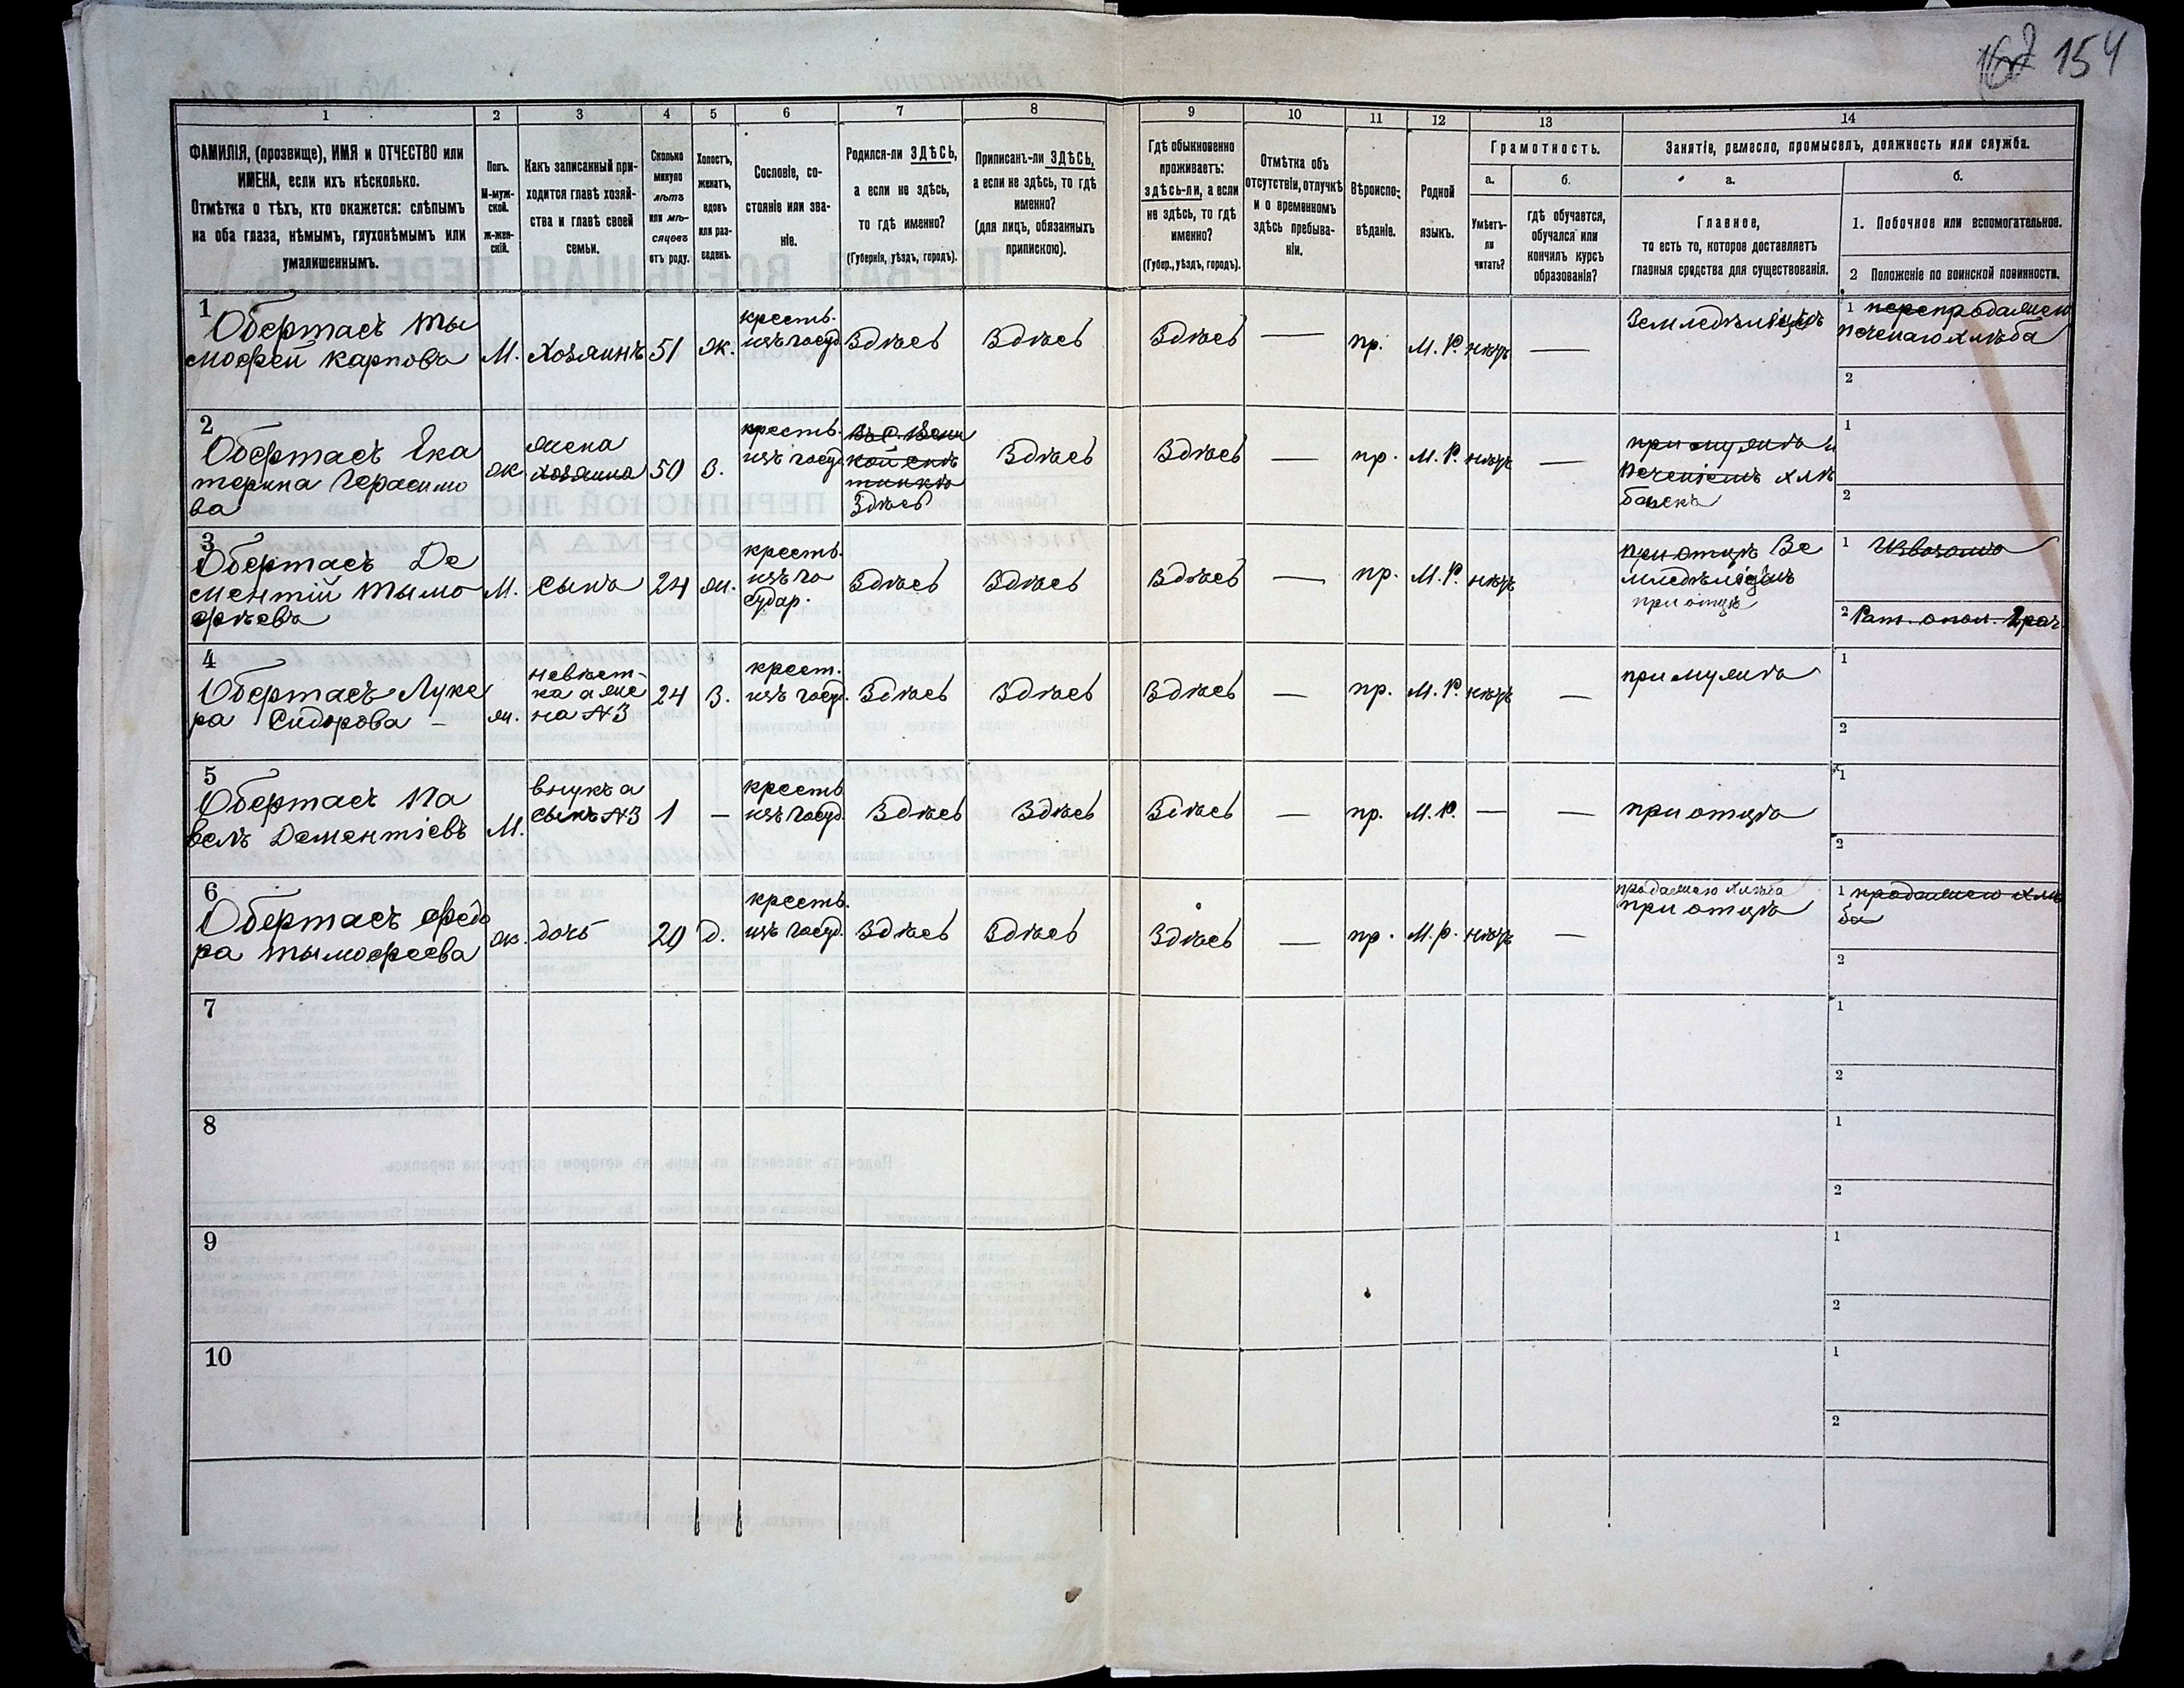 154
1 2 3 4 5 6 7 8 9 10 11 12 13 14
ФАМИЛІЯ, (прозвище), ИМЯ и ОТЧЕСТВО или
ИМЕНА, если ихъ нѣсколько.
Отмѣтка о тѣхъ, кто окажется: слѣпымъ
на оба глаза, нѣмымъ, глухонѣмымъ или
умалишеннымъ.
Полъ.
М-муж-
ской.
ж-жен-
скій.
Какъ записанный при-
ходится главѣ хозяй-
ства и главѣ своей
семьи.
Сколько
минуло
лѣтъ
или мѣ-
сяцевъ
отъ роду.
Холостъ,
женатъ,
вдовъ
или раз-
веденъ.
Сословіе, со-
стояніе или зва-
ніе.
Родился-ли ЗДѢСЬ,
а если не здѣсь,
то гдѣ именно?
(Губернія, уѣздъ, городъ).
Приписанъ-ли ЗДѢСЬ,
а если не здѣсь, то гдѣ
именно?
(для лицъ, обязанныхъ
припискою).
Гдѣ обыкновенно
проживаетъ:
здѣсь-ли, а если
не здѣсь, то гдѣ
именно?
(Губер., уѣздъ, городъ).
Отмѣтка объ
отсутствіи, отлучкѣ
и о временномъ
здѣсь пребыва-
ніи.
Вѣроиспо-
вѣданіе.
Родной
языкъ.
Грамотность.
а.
Умѣетъ-
ли
читать?
б.
гдѣ обучается,
обучался или
кончилъ курсъ
образованія?
Занятіе, ремесло, промыселъ, должность или служба.
а.
Главное,
то есть то, которое доставляетъ
главныя средства для существованія.
б.
1. Побочное или вспомогательное.
2 Положеніе по воинской повинности.
1
Обертасъ Ты
мофей Карпова
М.
Хозяинъ
51
ж.
кресть.
изъ госуд.
Здѣсь
Здѣсь
Здѣсь
—
пр.
М. Р.
нѣтъ
—
1 перепродажею
печенаго хлѣба
2
2
Обертасъ Ека
терина Герасимо
ва
ж
жена
хозяина
50
З.
кресть.
изъ госуд.
Здѣсь
Здѣсь
Здѣсь
—
пр.
М. Р.
нѣтъ
—
при мужѣ и
печеніемъ хлѣ
1
2
3
Обертасъ Де
ментій Тымо
фѣевъ
М.
сынъ
24
ж.
кресть.
изъ го
судар.
Здѣсь
Здѣсь
Здѣсь
—
пр.
М. Р.
нѣтъ
при отцѣ Зе
при отцѣ
1 Извозомъ
2 Рат. опол.
4
Обертасъ Луке
ра Сидорова —
ж.
невѣст-
ка а же
на №3
24
З.
крест.
изъ госуд.
Здѣсь
Здѣсь
Здѣсь
—
пр.
М. Р.
нѣтъ
—
при мужѣ
1
2
5
Обертасъ Па
велъ Дементіевъ
М.
внукъ а
сынъ №3
1
—
кресть
изъ госуд.
Здѣсь
Здѣсь
Здѣсь
—
пр.
М. Р.
—
—
при отцѣ
1
2
6
Обертасъ Федо
ра Тымофеева
ж.
дочь
20
д.
кресть.
изъ госуд.
Здѣсь
Здѣсь
Здѣсь
—
пр.
М. р.
нѣтъ
—
продажею хлѣба
при отцѣ
1 продажею хлѣ
ба
2
7
1
2
8
1
2
9
1
2
10
1
2